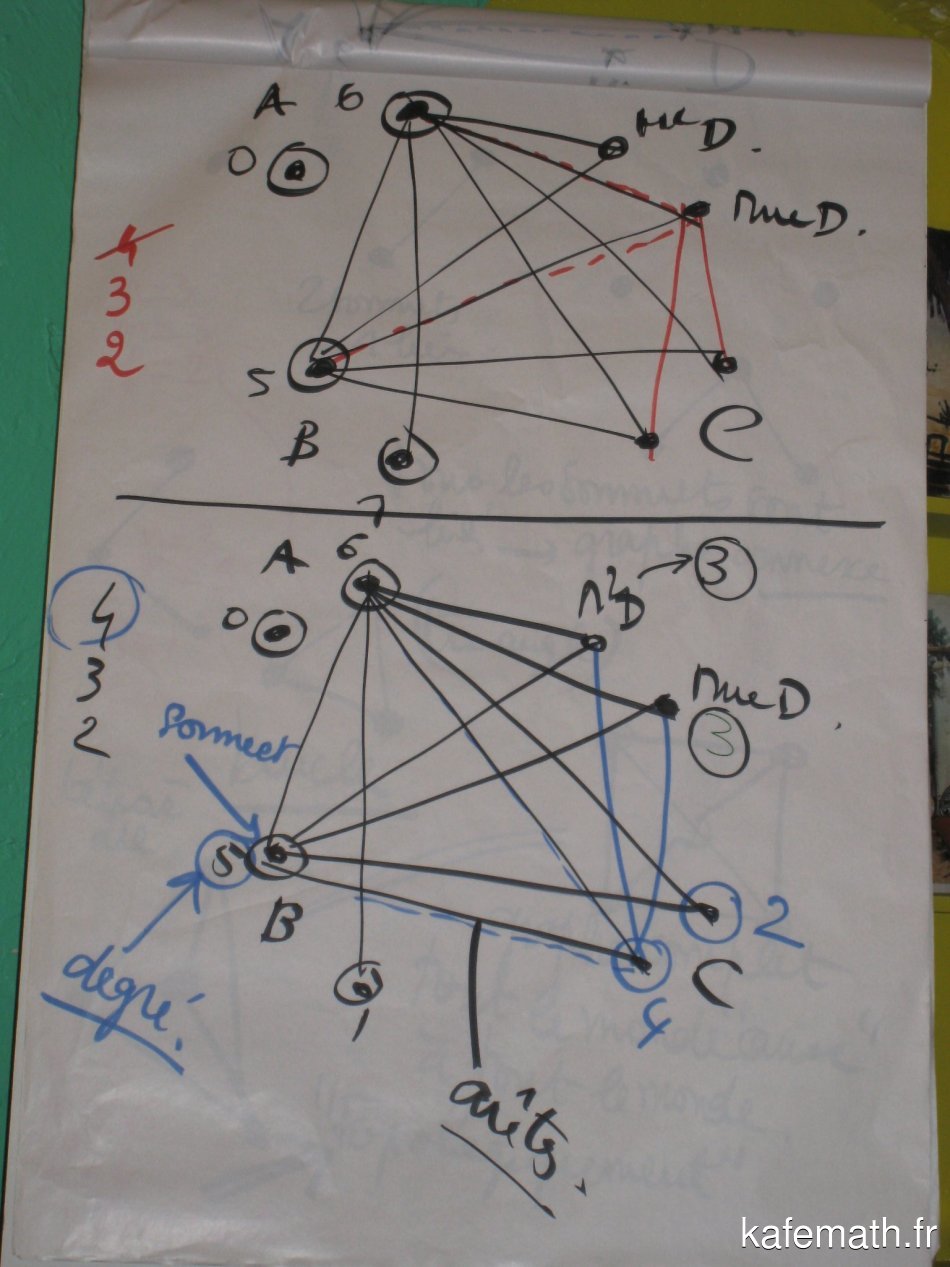 A 6
Mr D.
0
Mme D.
4
3
2
5
B
C
1
A 6
3
Mr D
0
4
3
2
Mme D.
3
sommet
5
B
2
C
degré.
1
4
arêtes.
kafemath.fr